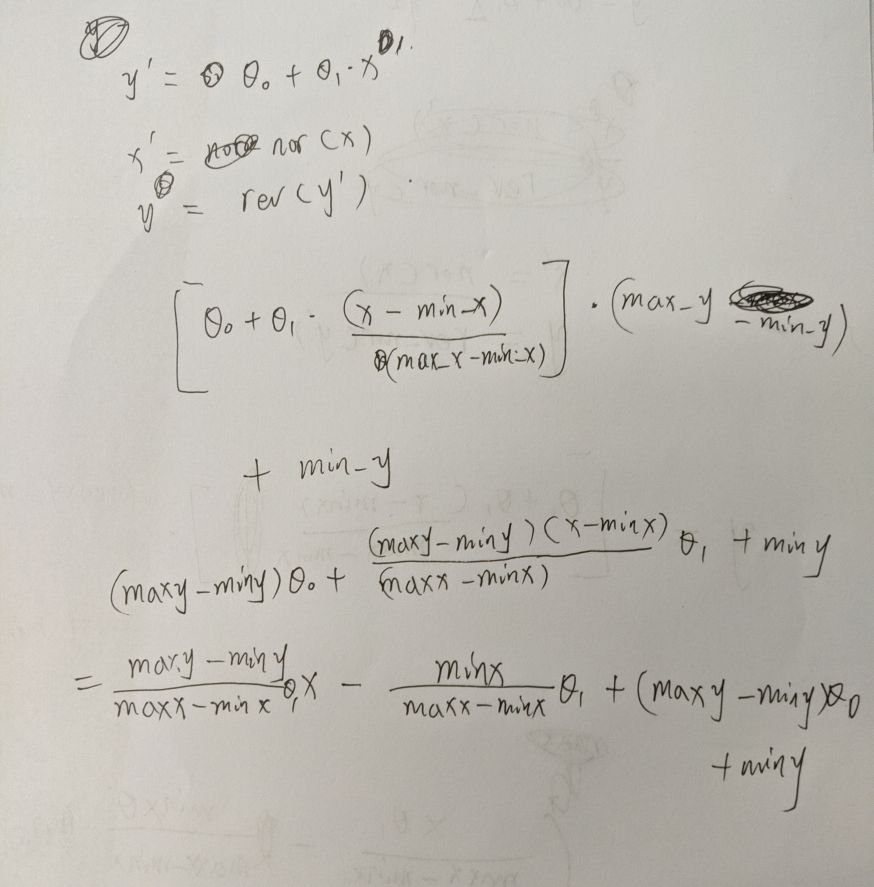 y' = θ₀ + θ₁·x'
x' = nor(x)
y = rev(y')
[θ₀ + θ₁ · (x - min-x) / (max_x - min-x)] · (max-y - min-y)
+ min-y
(maxy - miny)θ₀ + (maxy - miny)(x - minx) / (maxx - minx) θ₁ + miny
= maxy - miny / maxx - minx θ₁x - minx / maxx - minx θ₁ + (maxy - miny)θ₀
+ miny